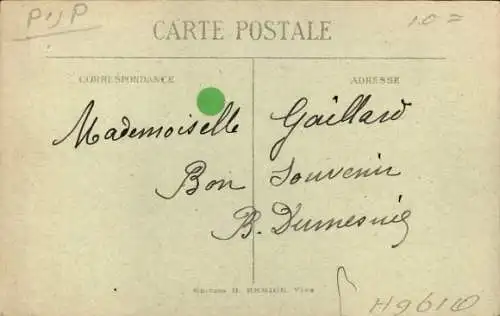 P'JP
10=
CARTE POSTALE
CORRESPONDANCE
ADRESSE
Mademoiselle Gaillard
Bon Souvenir
B. Dumesnil
H9610